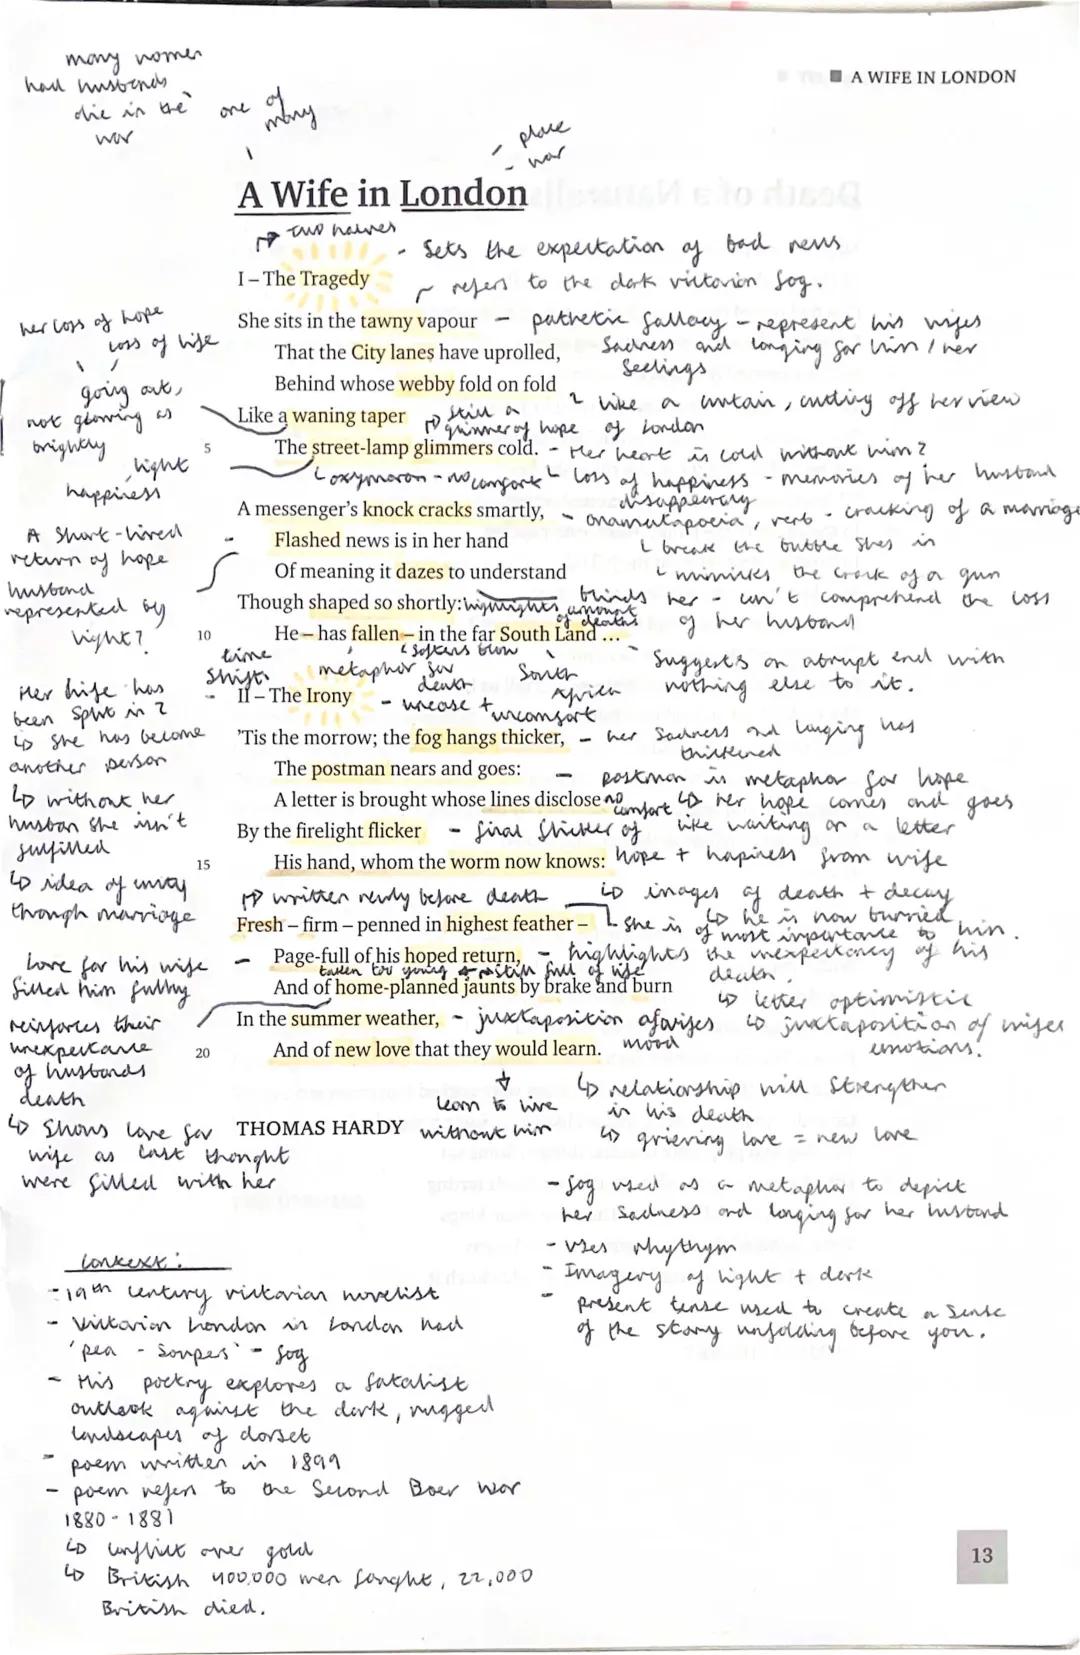 many women
had husbands
die in the
war
one of
many
■ A WIFE IN LONDON
- place
- war
A Wife in London
two halves
- Sets the expectation of bad news
I – The Tragedy
refers to the dark victorian fog.
She sits in the tawny vapour
- pathetic fallacy - represent his wifes
Sadness and longing for him / her
feelings
That the City lanes have uprolled,
Behind whose webby fold on fold
like a curtain, cutting off her view
of London
Like a waning taper
still a
glimmer of hope
5
The street-lamp glimmers cold.
- Her heart is cold without him?
her loss of hope
loss of life
going out,
not glowing as
brightly
light
happiness
oxymoron - no comfort
loss of happiness - memories of her husband
disappearing
A messenger's knock cracks smartly,
- onamatapoeia, verb - cracking of a marriage
Flashed news is in her hand
break the bubble shes in
Of meaning it dazes to understand
mimicks the crack of a gun
Though shaped so shortly:
highlights amount
of deaths
blinds her - can't comprehend the loss
of her husband
10
He – has fallen – in the far South Land ...
A Short-lived
return of hope
husband
represented by
light?
softens blow
Suggests an abrupt end with
nothing else to it.
time
shift
metaphor for
death
South
Africa
II – The Irony
- unease +
uncomfort
'Tis the morrow; the fog hangs thicker,
- her Sadness and longing has
thickened
The postman nears and goes:
- postman is metaphor for hope
her hope comes and goes
like waiting on a letter
A letter is brought whose lines disclose
no
comfort
By the firelight flicker
- final flicker of
hope + hapiness from wife
15
His hand, whom the worm now knows:
images of death + decay
he is now burried
Her life has
been split in 2
she has become
another person
without her
husban she isn't
fulfilled
idea of unity
through marriage
written newly before death
She is of most importance to him.
Fresh – firm – penned in highest feather –
Page-full of his hoped return,
- highlights the unexpectancy of his
death.
taken too young
still full of life
And of home-planned jaunts by brake and burn
letter optimistic
In the summer weather,
- juxtaposition of wifes
mood
juxtaposition of wifes
emotions.
20
And of new love that they would learn.
love for his wife
filled him fully
reinforces their
unexpectance
of husbands
death
Shows love for
wife as last thought
were filled with her
learn to live
without him
relationship will Strengthen
in his death
grieving love = new love
THOMAS HARDY
- fog used as a metaphor to depict
her Sadness and longing for her husband
- uses rhythym
- Imagery of light + dark
- present tense used to create a Sense
of the story unfolding before you.
Context:
- 19th century victorian novelist
- Victorian London in London had
'pea - Soupers' - fog
- His poetry explores a fatalist
outlook against the dark, rugged
landscapes of dorset
- poem written in 1899
- poem refers to the Second Boer war
1880 - 1881
conflict over gold
British 400,000 men fought, 22,000
British died.
13